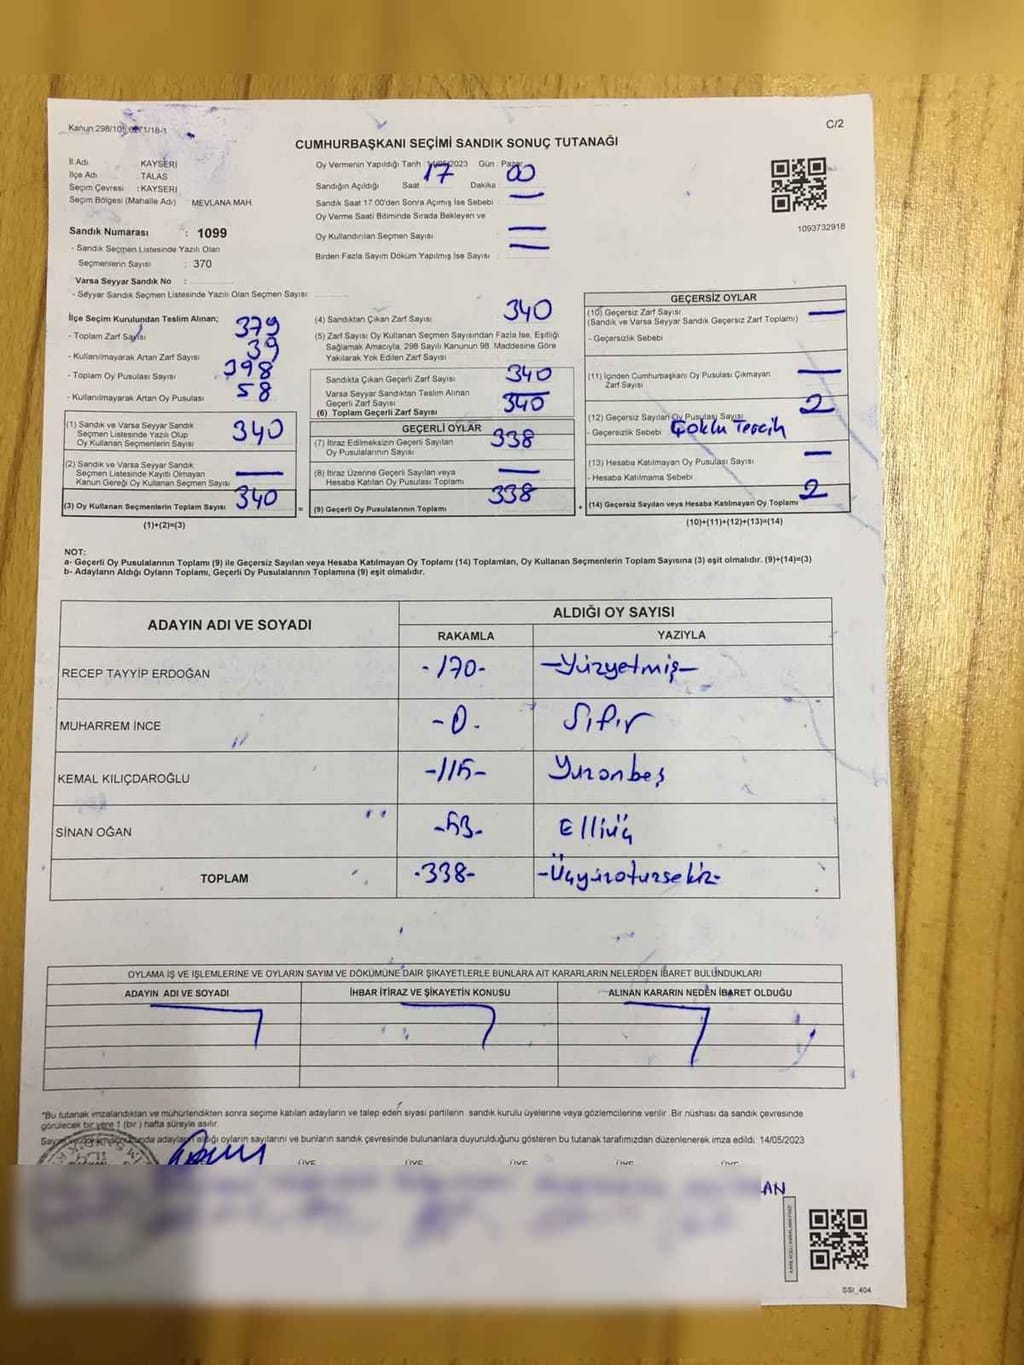 Kanun:298/105, 6271/18-1
C/2
CUMHURBAŞKANI SEÇİMİ SANDIK SONUÇ TUTANAĞI
İl Adı : KAYSERİ
İlçe Adı : TALAS
Seçim Çevresi : KAYSERİ
Seçim Bölgesi (Mahalle Adı) : MEVLANA MAH.
Sandık Numarası : 1099
- Sandık Seçmen Listesinde Yazılı Olan
Seçmenlerin Sayısı : 370
Varsa Seyyar Sandık No :
- Seyyar Sandık Seçmen Listesinde Yazılı Olan Seçmen Sayısı:
Oy Vermenin Yapıldığı Tarih : 14/05/2023 Gün : Pazar
Sandığın Açıldığı Saat : 17 Dakika : 00
Sandık Saat 17:00'den Sonra Açımış İse Sebebi : —
Oy Verme Saati Bitiminde Sırada Bekleyen ve
Oy Kullandırılan Seçmen Sayısı : —
Birden Fazla Sayım Döküm Yapılmış İse Sayısı : —
1093732918
İlçe Seçim Kurulundan Teslim Alınan;
- Toplam Zarf Sayısı : 379
- Kullanılmayarak Artan Zarf Sayısı : 39
- Toplam Oy Pusulası Sayısı : 398
- Kullanılmayarak Artan Oy Pusulası : 58
(1) Sandık ve Varsa Seyyar Sandık
Seçmen Listesinde Yazılı Olup
Oy Kullanan Seçmenlerin Sayısı 340
(2) Sandık ve Varsa Seyyar Sandık
Seçmen Listesinde Kayıtlı Olmayan
Kanun Gereği Oy Kullanan Seçmen Sayısı —
(3) Oy Kullanan Seçmenlerin Toplam Sayısı 340
(1)+(2)=(3)
(4) Sandıktan Çıkan Zarf Sayısı : 340
(5) Zarf Sayısı Oy Kullanan Seçmen Sayısından Fazla İse, Eşitliği
Sağlamak Amacıyla, 298 Sayılı Kanunun 98. Maddesine Göre
Yakılarak Yok Edilen Zarf Sayısı :
Sandıkta Çıkan Geçerli Zarf Sayısı 340
Varsa Seyyar Sandıktan Teslim Alınan
Geçerli Zarf Sayısı —
(6) Toplam Geçerli Zarf Sayısı 340
GEÇERLİ OYLAR
(7) İtiraz Edilmeksizin Geçerli Sayılan
Oy Pusulalarının Sayısı 338
(8) İtiraz Üzerine Geçerli Sayılan veya
Hesaba Katılan Oy Pusulası Toplamı —
(9) Geçerli Oy Pusulalarının Toplamı 338
GEÇERSİZ OYLAR
(10) Geçersiz Zarf Sayısı : —
(Sandık ve Varsa Seyyar Sandık Geçersiz Zarf Toplamı)
- Geçersizlik Sebebi
(11) İçinden Cumhurbaşkanı Oy Pusulası Çıkmayan
Zarf Sayısı —
(12) Geçersiz Sayılan Oy Pusulası Sayısı 2
- Geçersizlik Sebebi Çoklu Tercih
(13) Hesaba Katılmayan Oy Pusulası Sayısı —
- Hesaba Katılmama Sebebi
(14) Geçersiz Sayılan veya Hesaba Katılmayan Oy Toplamı 2
(10)+(11)+(12)+(13)=(14)
NOT:
a- Geçerli Oy Pusulalarının Toplamı (9) ile Geçersiz Sayılan veya Hesaba Katılmayan Oy Toplamı (14) Toplamları, Oy Kullanan Seçmenlerin Toplam Sayısına (3) eşit olmalıdır. (9)+(14)=(3)
b- Adayların Aldığı Oyların Toplamı, Geçerli Oy Pusulalarının Toplamına (9) eşit olmalıdır.
ADAYIN ADI VE SOYADI ALDIĞI OY SAYISI
RAKAMLA YAZIYLA
RECEP TAYYİP ERDOĞAN -170- -Yüzyetmiş-
MUHARREM İNCE -0- Sıfır
KEMAL KILIÇDAROĞLU -115- Yüzonbeş
SİNAN OĞAN -53- Elliüç
TOPLAM -338- -Üçyüzotuzsekiz-
OYLAMA İŞ VE İŞLEMLERİNE VE OYLARIN SAYIM VE DÖKÜMÜNE DAİR ŞİKAYETLERLE BUNLARA AİT KARARLARIN NELERDEN İBARET BULUNDUKLARI
ADAYIN ADI VE SOYADI İHBAR İTİRAZ VE ŞİKAYETİN KONUSU ALINAN KARARIN NEDEN İBARET OLDUĞU
*Bu tutanak imzalandıktan ve mühürlendikten sonra seçime katılan adayların ve talep eden siyasi partilerin sandık kurulu üyelerine veya gözlemcilerine verilir. Bir nüshası da sandık çevresinde
görülecek bir yere 1 (bir ) hafta süreyle asılır.
adayların aldığı oyların sayılarını ve bunların sandık çevresinde bulunanlara duyurulduğunu gösteren bu tutanak tarafımızdan düzenlenerek imza edildi. 14/05/2023
ÜYE ÜYE ÜYE ÜYE ÜYE
SSI_404